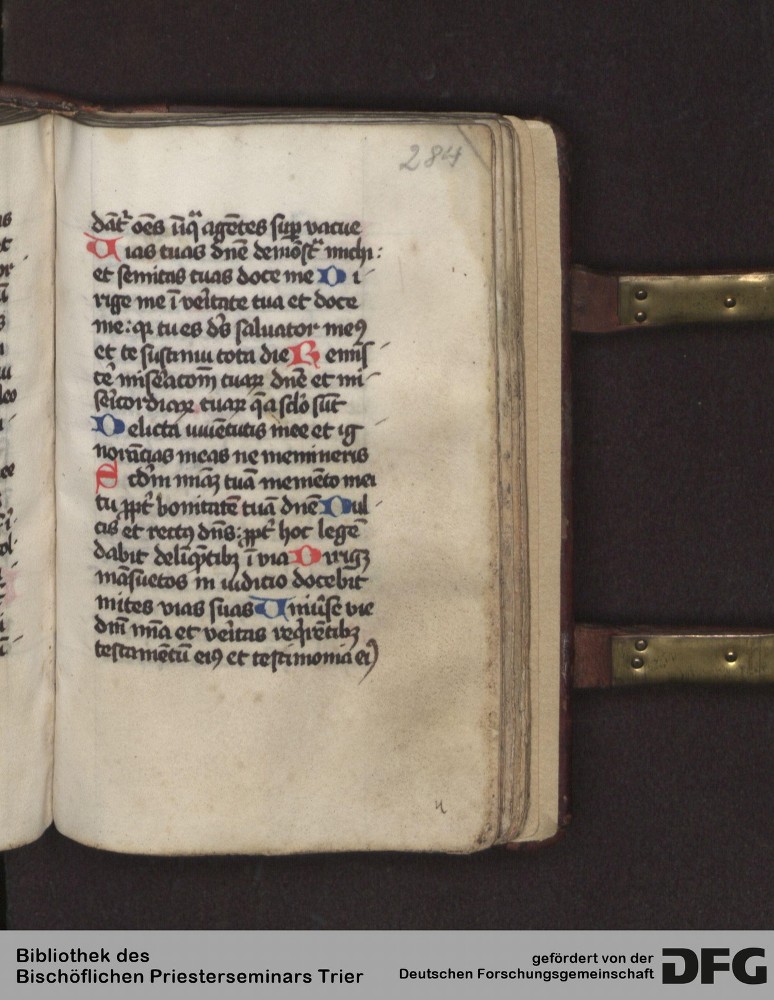 284
dāt᷑ oēs īiq̄ agētes suꝑ vacue
Vias tuas dn̄e demōst᷑ michi:
et semitas tuas doce me Di
rige me ī ve᷑itate tua et doce
me: qꝛ tu es dꝰs saluator meꝰ
et te sustinui tota die Remis
ce᷑ mise᷑acom̄ tuaꝝ dn̄e et mi
se᷑icordiaꝝ tuaꝝ q̄ a sclo᷑ sūt
Delicta iuuētutis mee et ig
norācias meas ne memineris
Scd᷑m mīaꝫ tuā memēto mei
tu ꝓpt᷑ bonitatē tuā dn̄e Dul
cis et rectꝰ dn̄s: ꝓpt᷑ hoc legē
dabit deliq̄tibꝫ ī via Dirigꝫ
māsuetos in iudicio docebit
mites vias suas Vniu᷑se vie
dn̄i mīa et ve᷑itas reqi᷑rētibꝫ
testamētū eiꝰ et testimonia eiꝰ
Bibliothek des
Bischöflichen Priesterseminars Trier
gefördert von der
Deutschen Forschungsgemeinschaft
DFG